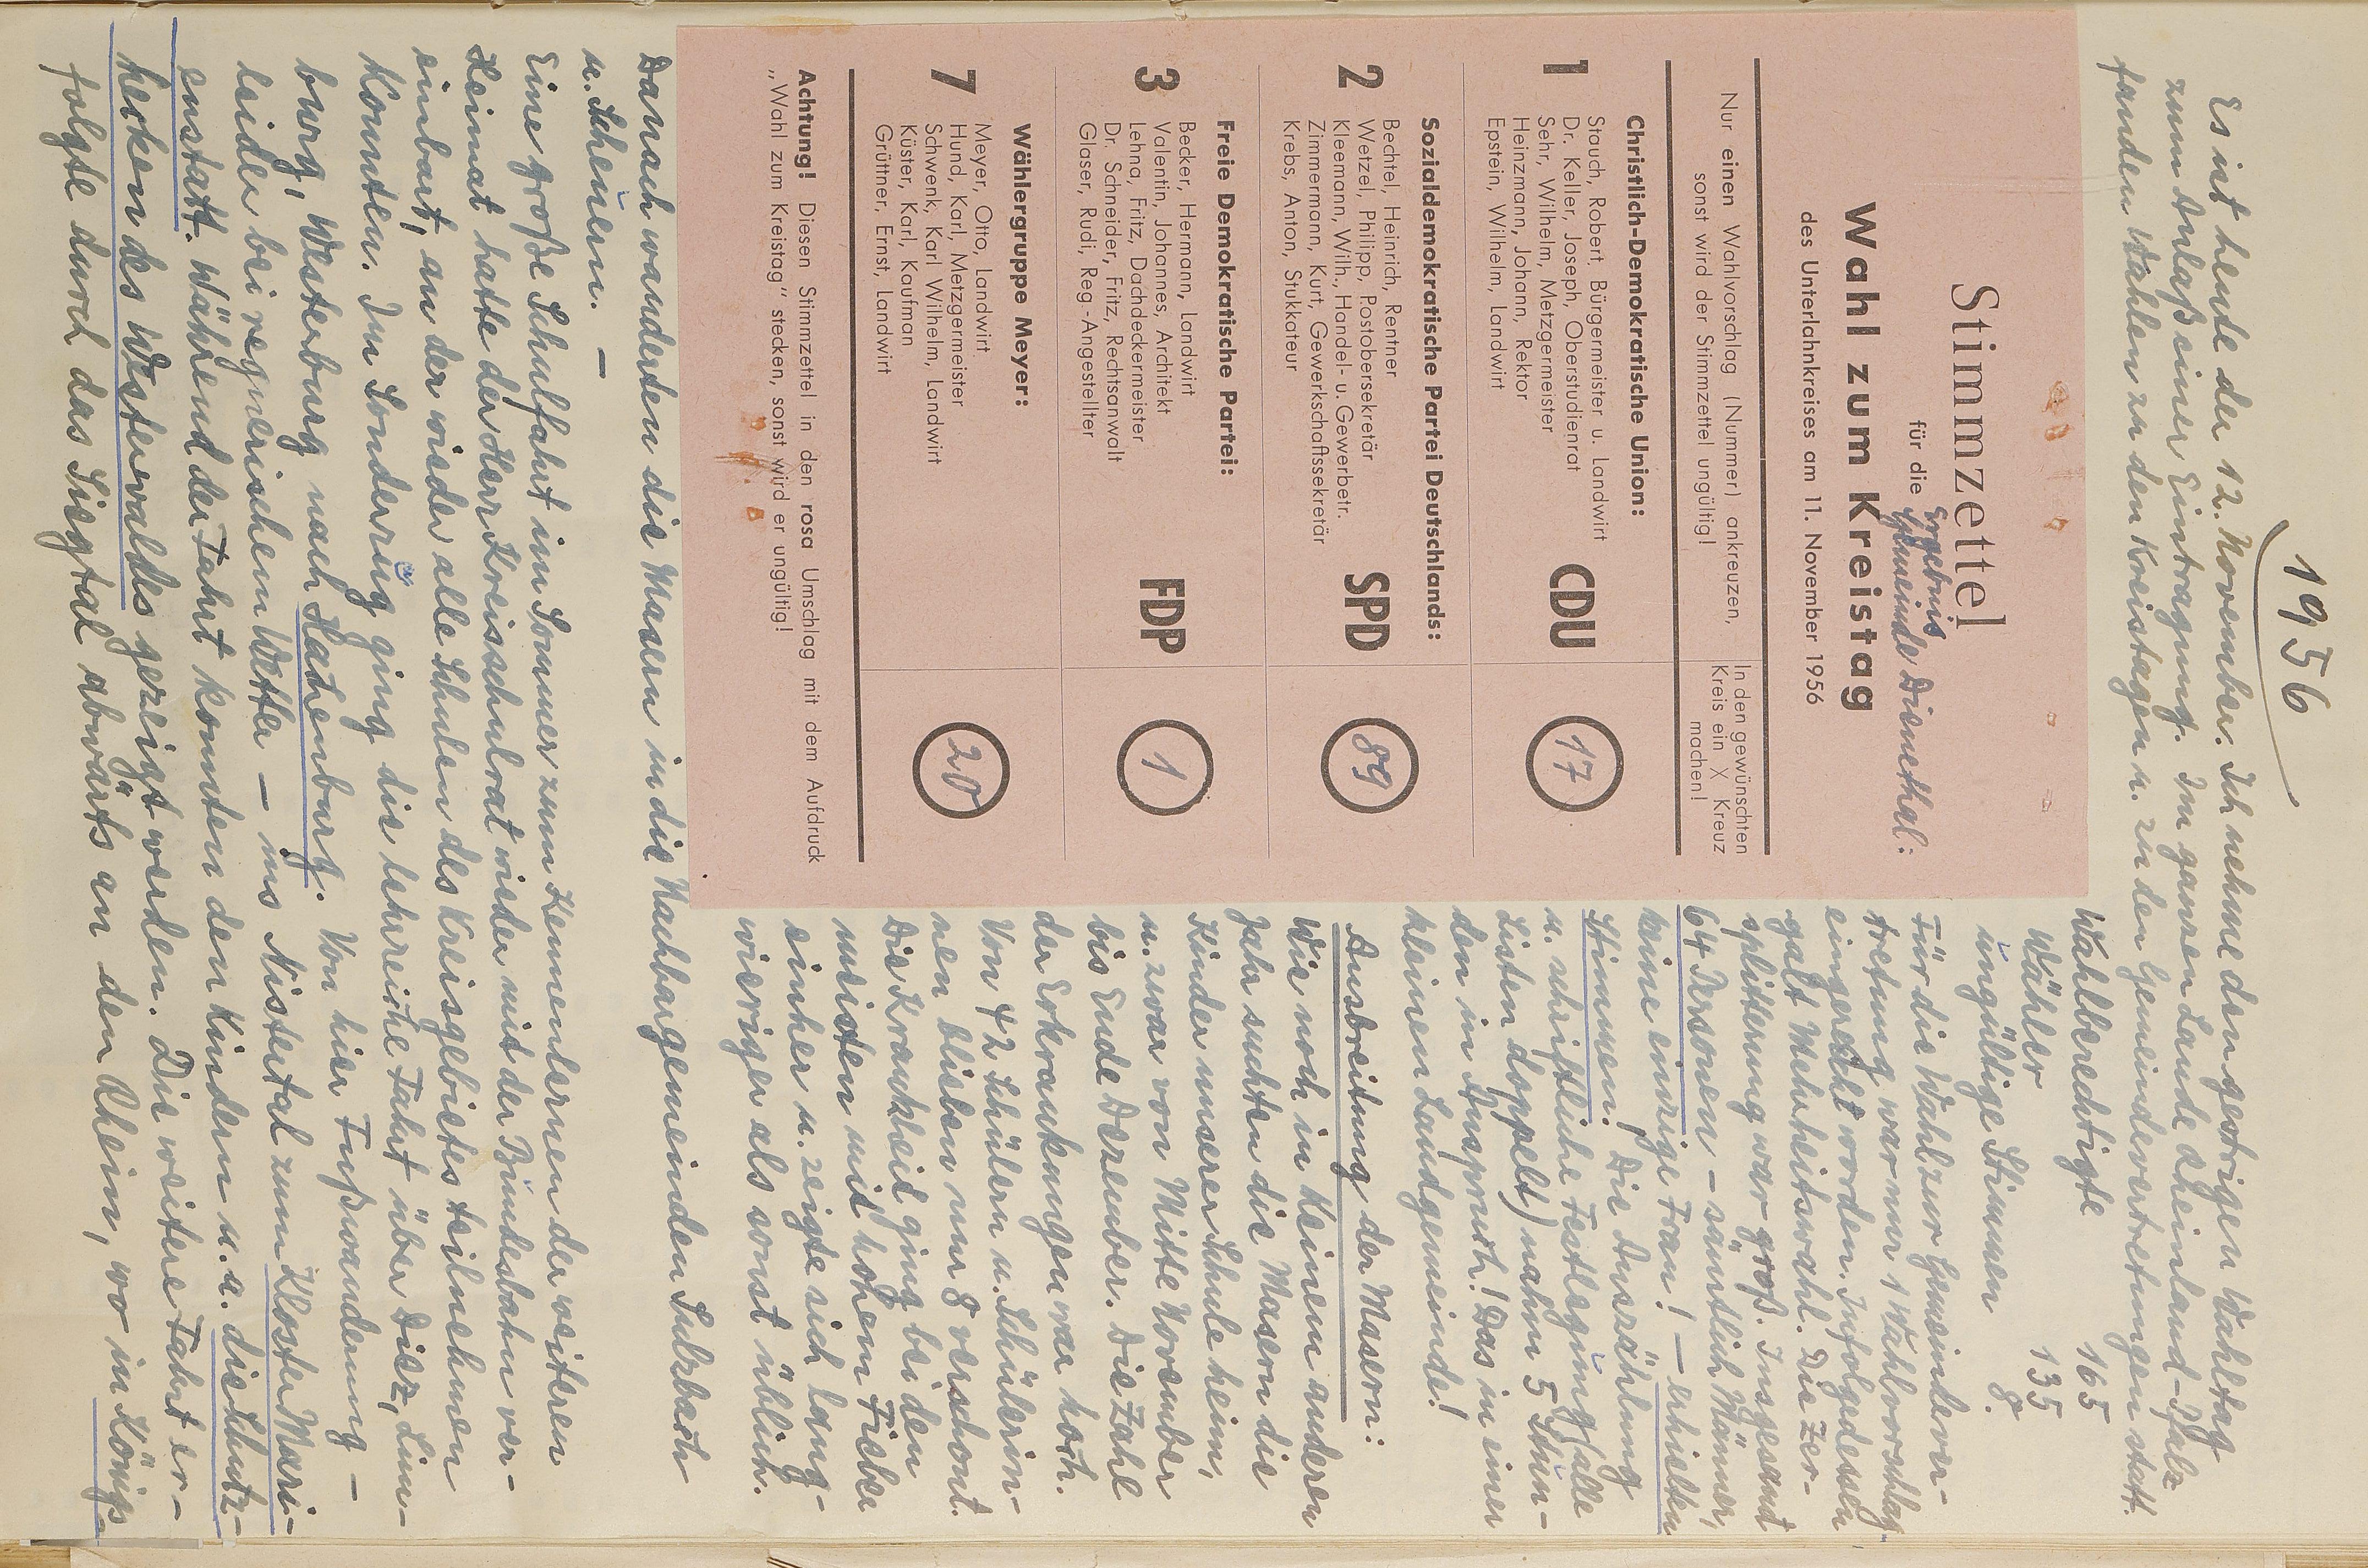 1956
Es ist heute der 12. November. Ich nehme den gestrigen Wahltag
zum Anlaß einer Eintragung. Im ganzen Lande Rheinland-Pfalz
fanden Wahlen zu den Kreistagen u. zu den Gemeindevertretungen statt.
Stimmzettel
für die Ergebnis
Gemeinde Dienethal:
Wahl zum Kreistag
des Unterlahnkreises am 11. November 1956
Nur einen Wahlvorschlag (Nummer) ankreuzen,
sonst wird der Stimmzettel ungültig!
In den gewünschten
Kreis ein X Kreuz
machen!
Christlich-Demokratische Union:
1 Stauch, Robert, Bürgermeister u. Landwirt
Dr. Keller, Joseph, Oberstudienrat
Sehr, Wilhelm, Metzgermeister
Heinzmann, Johann, Rektor
Epstein, Wilhelm, Landwirt
CDU 17
Sozialdemokratische Partei Deutschlands:
2 Bechtel, Heinrich, Rentner
Wetzel, Philipp, Postobersekretär
Kleemann, Wilh., Handel- u. Gewerbetr.
Zimmermann, Kurt, Gewerkschaftssekretär
Krebs, Anton, Stukkateur
SPD 89
Freie Demokratische Partei:
3 Becker, Hermann, Landwirt
Valentin, Johannes, Architekt
Lehna, Fritz, Dachdeckermeister
Dr. Schneider, Fritz, Rechtsanwalt
Glaser, Rudi, Reg.-Angestellter
FDP 1
Wählergruppe Meyer:
7 Meyer, Otto, Landwirt
Hund, Karl, Metzgermeister
Schwenk, Karl Wilhelm, Landwirt
Küster, Karl, Kaufman
Grüttner, Ernst, Landwirt
20
Achtung! Diesen Stimmzettel in den rosa Umschlag mit dem Aufdruck
„Wahl zum Kreistag" stecken, sonst wird er ungültig!
Wahlberechtigte 165
Wähler 135
ungültige Stimmen 8.
Für die Wahl zur Gemeindever-
tretung war nur 1 Wahlvorschlag
eingereicht worden. Infolgedessen
galt Mehrheitswahl. Die Zer-
splitterung war groß. Insgesamt
64 Personen – sämtlich Männer,
keine einzige Frau! – erhielten
Stimmen! Die Auszählung
u. schriftliche Festlegung (alle
Listen doppelt) nahm 5 Stun-
den in Anspruch! Das in einer
kleinen Landgemeinde!
Ausbreitung der Masern:
Wie noch in keinem anderen
Jahr suchten die Masern die
Kinder unserer Schule heim,
u. zwar von Mitte November
bis Ende Dezember. Die Zahl
der Erkrankungen war hoch.
Von 42 Schülern u. Schülerin-
nen blieben nur 8 verschont.
Die Krankheit ging bei den
meisten mit hohem Fieber
einher u. zeigte sich lang-
wieriger als sonst üblich.
Danach wanderten die Masern in die Nachbargemeinden Sulzbach
u. Scheuern. –
Eine große Schulfahrt im Sommer zum Kennenlernen der weiteren
Heimat hatte der Herr Kreisschulrat wieder mit der Bundesbahn ver-
einbart, an der wieder alle Schulen des Kreisgebietes teilnehmen
konnten. Im Sonderzug ging die lehrreiche Fahrt über Diez, Lim-
burg, Westerburg nach Hachenburg. Von hier Fußwanderung –
leider bei regnerischem Wetter – ins Nistertal zum Kloster Mari-
enstatt. Während der Fahrt konnten den Kindern u. a. die Schutz-
hecken des Westerwaldes gezeigt werden. Die weitere Fahrt er-
folgte durch das Siegtal abwärts an den Rhein, wo in Königs-